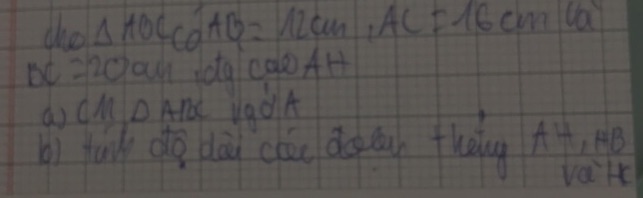 cho Δ ABC có AB = 12cm, AC = 16cm và
BC = 20cm, đg cao AH
a) CM Δ ABC vg ở A
b) tính độ dài các đoạn thẳng AH, HB
và HC